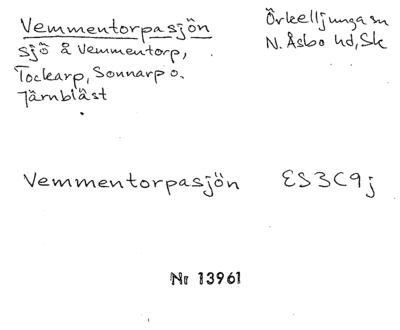 Vemmentorpasjön
sjö å Vemmentorp,
Tockarp, Sonnarp o.
Järnbläst
Örkelljunga sn
N. Åsbo hd, Sk
Vemmentorpasjön ES3C9j
Nr 13961